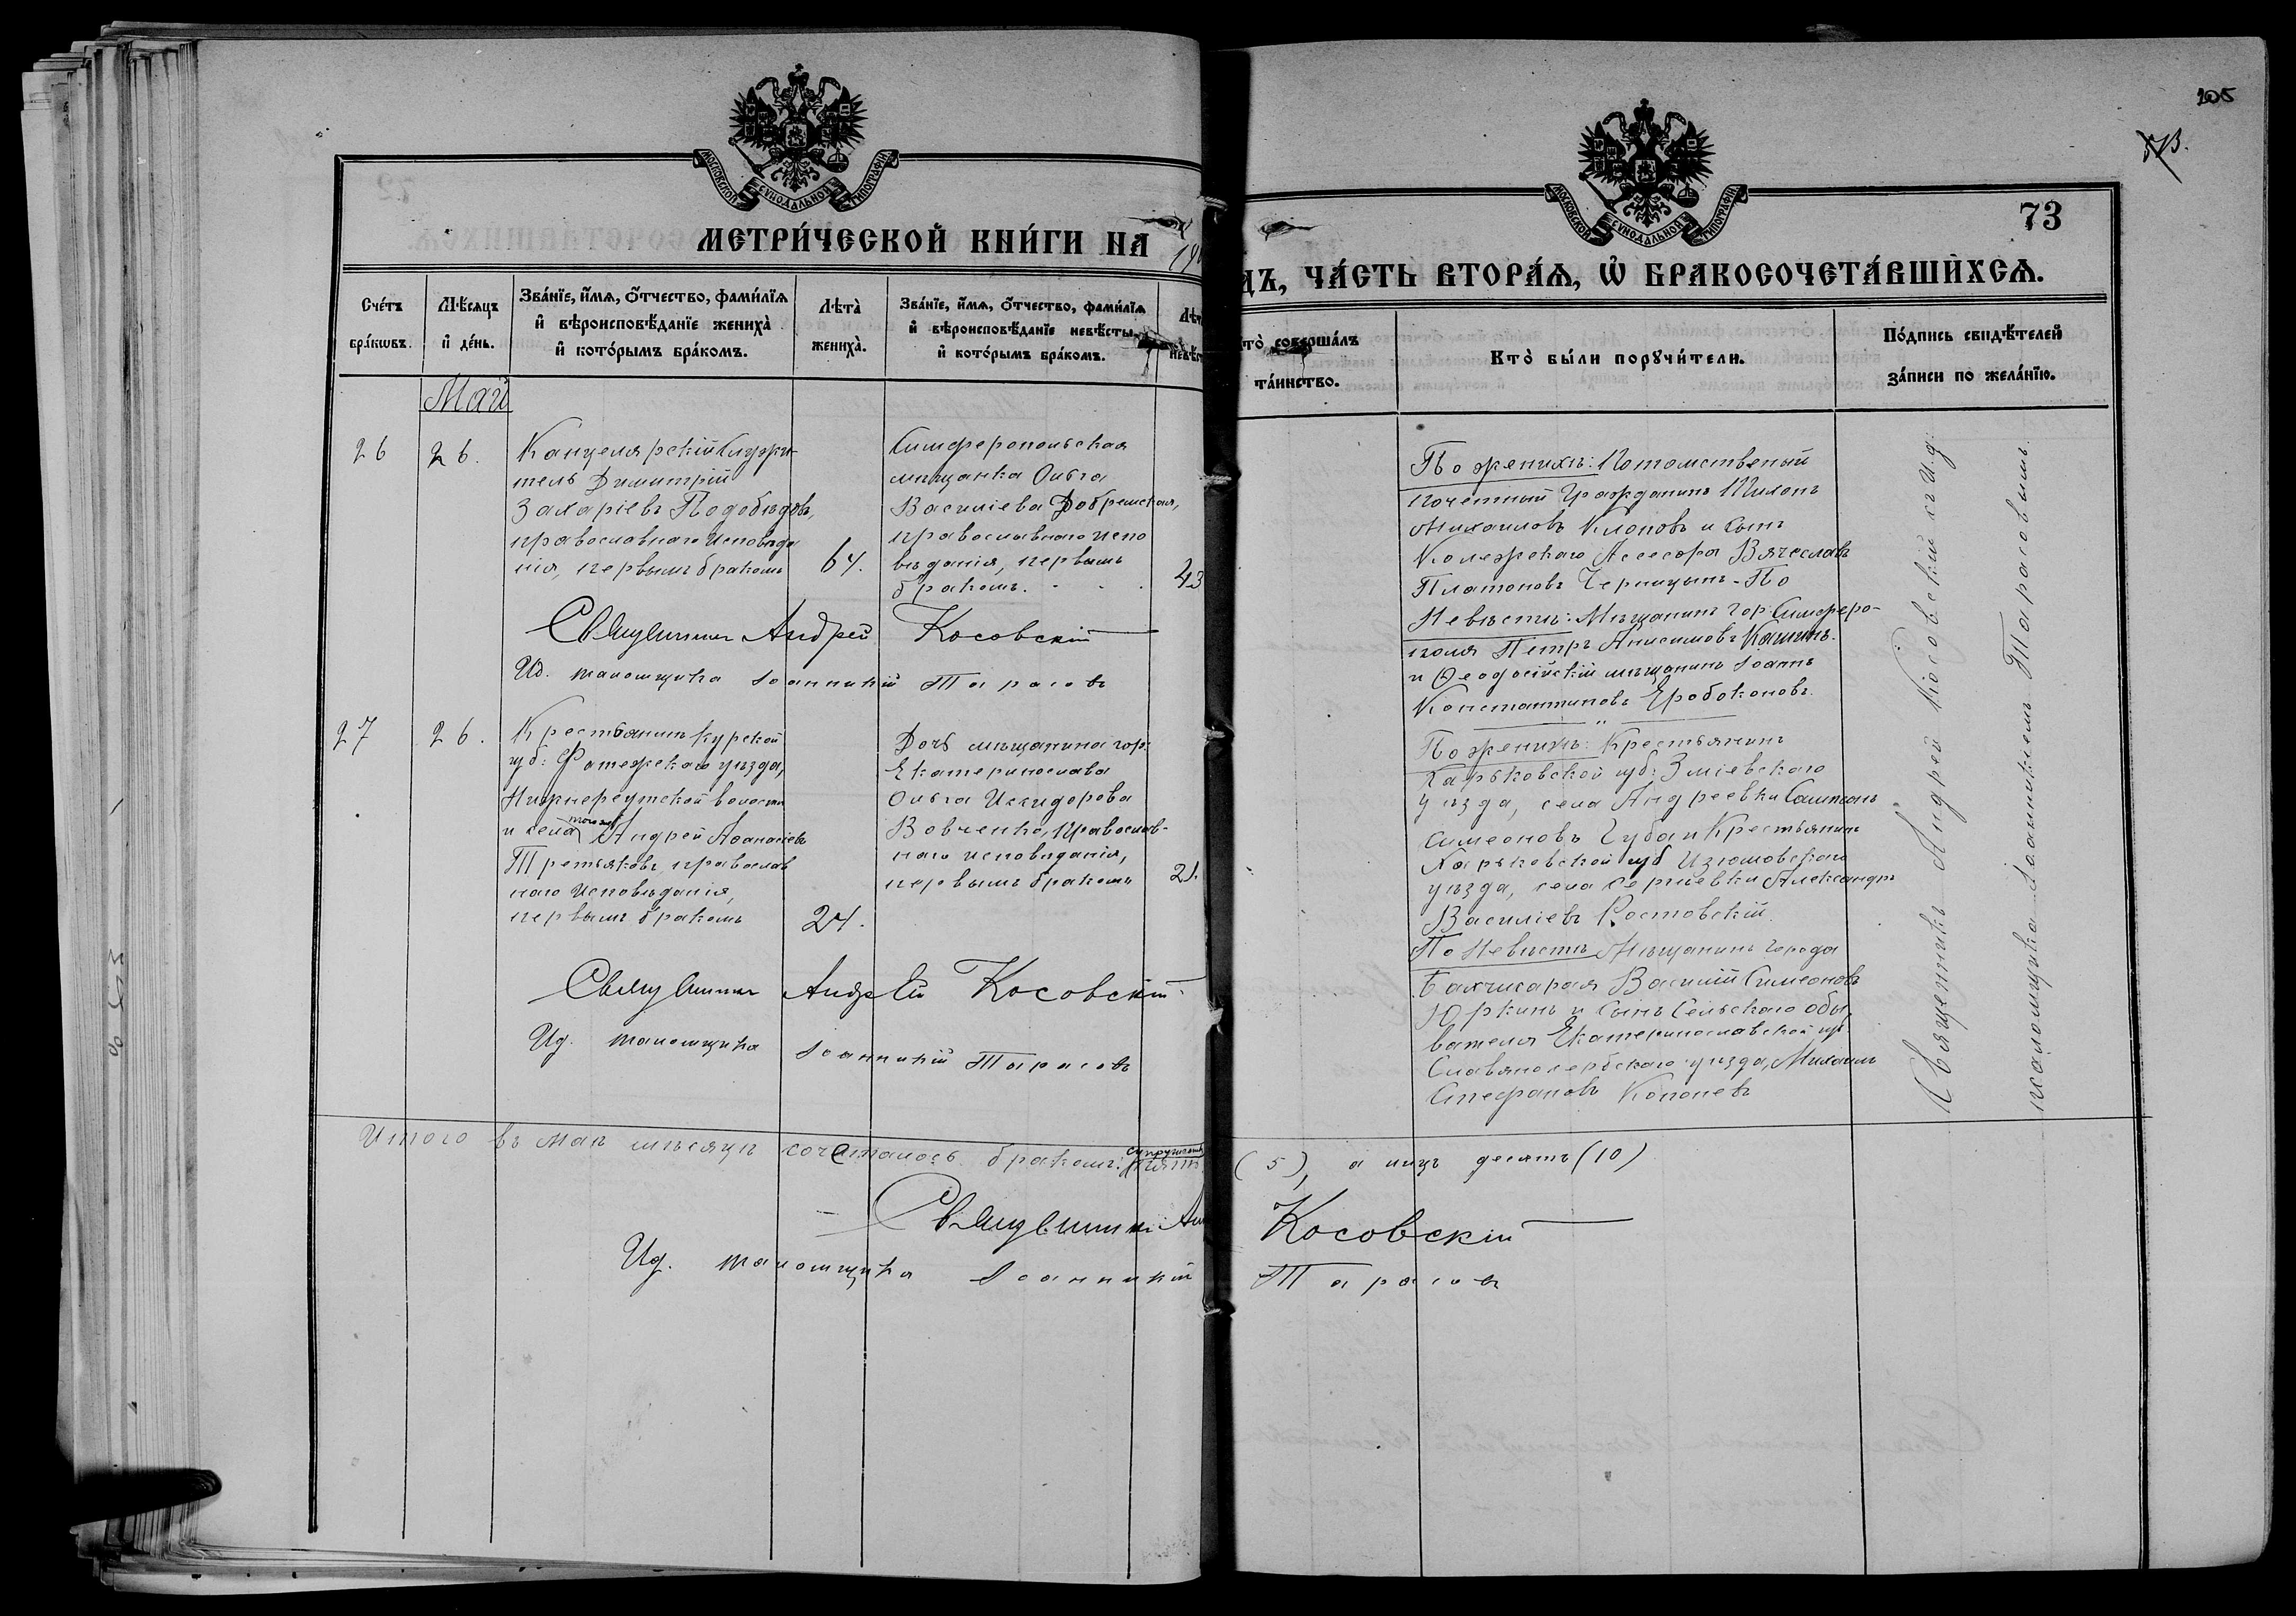 205
573.
73
МОСКОВСКОЙ СѴНОДАЛЬНОЙ ТИПОГРАФІИ
МОСКОВСКОЙ СѴНОДАЛЬНОЙ ТИПОГРАФІИ
МЕТРИ́ЧЕСКОЙ КНИ́ГИ НА 19
ДЪ, ЧА́СТЬ ВТОРА́Ѧ, Ѽ БРАКОСОЧЕТА́ВШИХСѦ.
Сче́тъ бра́кѡвъ.
Мѣ́сяцъ и҆ де́нь.
Зва́нїе, и҆́мѧ, ѻ҆́тчество, фами́лїѧ
и҆ вѣроисповѣ́данїе жениха̀
и҆ кото́рымъ бра́комъ.
Лѣта̀ жениха̀.
Зва́нїе, и҆́мѧ, ѻ҆́тчество, фами́лїѧ
и҆ вѣроисповѣ́данїе невѣ́сты,
и҆ кото́рымъ бра́комъ.
Лѣт
невѣс
то̀ соверша́лъ
та́инство.
Кто̀ бы́ли порꙋчи́тели.
По́дпись свидѣ́телей
за́писи по жела́нїю.
Май
26
26.
Канцелярскій Служи-
тель Димитрій
Захаріевъ Подобѣдовъ,
православнаго исповѣда
нія, первымъ бракомъ
64.
Симферопольская
мѣщанка Ольга
Василіева Добрешская,
православнаго испо
вѣданія, первымъ
бракомъ.
43
По женихѣ: Потомственый
почетный Гражданинъ
Михаиловъ Клоповъ и сынъ
Колежскаго Асессора Вячеславъ
Платоновъ Черницынъ. По
Невѣстѣ: Мѣщанинъ гор: Симферо-
поля Петръ Анисимовъ
и Ѳеодосійскій мѣщанинъ Іоаннъ
Константиновъ Еробоконовъ.
Священникъ Андрей Косовскій
Ид. псаломщика Іоанникій Тарасовъ
27
26.
Крестьянинъ Курской
губ: Фатежскаго уѣзда,
Нижнереутской волости
и села тогожъ Андрей Аѳанасіевъ
Третьяковъ, православ
наго исповѣданія,
первымъ бракомъ
24.
Дочь мѣщанина гор:
Екатеринослава
Ольга Исидорова
Вовченко, православ-
наго исповѣданія,
первымъ бракомъ
21.
По женихѣ: Крестьянинъ
Харьковской губ: Зміевскаго
уѣзда, села Андреевки
Симеоновъ Губа и Крестьянинъ
Харьковской губ Изюмовскаго
уѣзда, села Сергіевки Александръ
Василіевъ Ростовскій.
По Невѣстѣ Мѣщанинъ города
Бахчисарая Василій Симеоновъ
Юркинъ и сынъ Сельскаго обы
вателя Екатеринославской губ
Славяносербскаго уѣзда, Михаилъ
Стефановъ Кононевъ
Священникъ Андрей Косовскій
Ид. псаломщика Іоанникій Тарасовъ
Священникъ Андрей Косовскій съ И.д:
псаломщика Іоанникіемъ Тарасовымъ.
Итого въ маѣ мѣсяцѣ сочеталось бракомъ: супружествъ пять (5), а лицъ десять (10)
Священникъ Ан Косовскій
Ид. псаломщика Іоанникій Тарасовъ